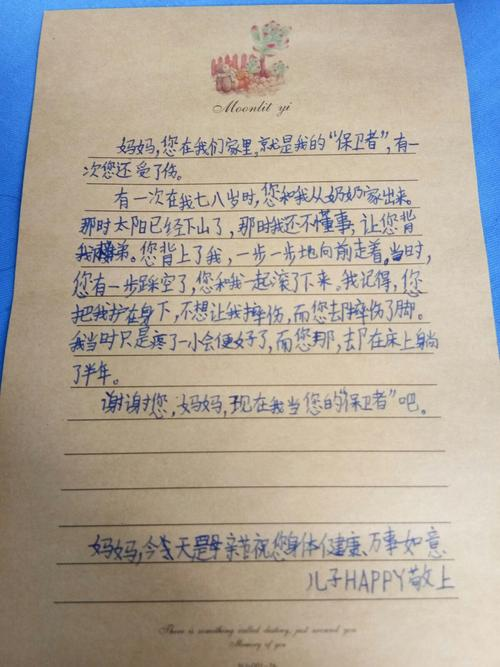 Moonlit yi
妈妈,您在我们家里,就是我的“保卫者”,有一
次您还受了伤。
有一次在我七八岁时,您和我从奶奶家出来。
那时太阳已经下山了,那时我还不懂事,让您背
您背上了我,一步一步地向前走着。当时,
您有一步踩空了,您和我一起滚了下来。我记得,您
把我护在身下,不想让我摔伤,而您却摔伤了脚。
我当时只是疼了一小会便好了,而您那,却在床上躺
了半年。
谢谢您,妈妈,现在我当您的“保卫者”吧。
妈妈,今天是母亲节祝您身体健康、万事如意
儿子HAPPY敬上
There is something called destiny, just around you
Memory of you